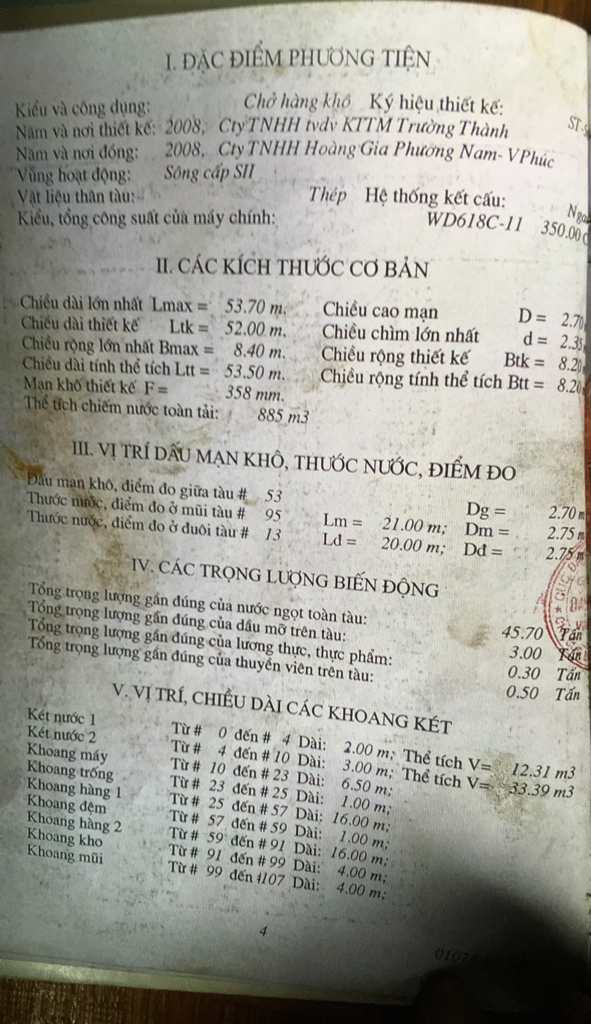 I. ĐẶC ĐIỂM PHƯƠNG TIỆN
Kiểu và công dụng: Chở hàng khô Ký hiệu thiết kế: ST-
Năm và nơi thiết kế: 2008, Cty TNHH tvdv KTTM Trường Thành
Năm và nơi đóng: 2008, Cty TNHH Hoàng Gia Phương Nam- VPhúc
Vùng hoạt động: Sông cấp SII
Vật liệu thân tàu: Thép Hệ thống kết cấu:
Kiểu, tổng công suất của máy chính: WD618C-11 350.00
II. CÁC KÍCH THƯỚC CƠ BẢN
Chiều dài lớn nhất Lmax = 53.70 m. Chiều cao mạn D = 2.70
Chiều dài thiết kế Ltk = 52.00 m. Chiều chìm lớn nhất d = 2.35
Chiều rộng lớn nhất Bmax = 8.40 m. Chiều rộng thiết kế Btk = 8.20
Chiều dài tính thể tích Ltt = 53.50 m. Chiều rộng tính thể tích Btt = 8.20
Mạn khô thiết kế F = 358 mm.
Thể tích chiếm nước toàn tải: 885 m3
III. VỊ TRÍ DẤU MẠN KHÔ, THƯỚC NƯỚC, ĐIỂM ĐO
Dấu mạn khô, điểm đo giữa tàu # 53 Dg = 2.70 m
Thước nước, điểm đo ở mũi tàu # 95 Lm = 21.00 m; Dm = 2.75 m
Thước nước, điểm đo ở đuôi tàu # 13 Ld = 20.00 m; Dd = 2.75 m
IV. CÁC TRỌNG LƯỢNG BIẾN ĐỘNG
Tổng trọng lượng gần đúng của nước ngọt toàn tàu: 45.70 Tấn
Tổng trọng lượng gần đúng của dầu mỡ trên tàu: 3.00 Tấn
Tổng trọng lượng gần đúng của lương thực, thực phẩm: 0.30 Tấn
Tổng trọng lượng gần đúng của thuyền viên trên tàu: 0.50 Tấn
V. VỊ TRÍ, CHIỀU DÀI CÁC KHOANG KÉT
Két nước 1 Từ # 0 đến # 4 Dài: 2.00 m; Thể tích V= 12.31 m3
Két nước 2 Từ # 4 đến # 10 Dài: 3.00 m; Thể tích V= 33.39 m3
Khoang máy Từ # 10 đến # 23 Dài: 6.50 m;
Khoang trống Từ # 23 đến # 25 Dài: 1.00 m;
Khoang hàng 1 Từ # 25 đến # 57 Dài: 16.00 m;
Khoang đệm Từ # 57 đến # 59 Dài: 1.00 m;
Khoang hàng 2 Từ # 59 đến # 91 Dài: 16.00 m;
Khoang kho Từ # 91 đến # 99 Dài: 4.00 m;
Khoang mũi Từ # 99 đến #107 Dài: 4.00 m;
4